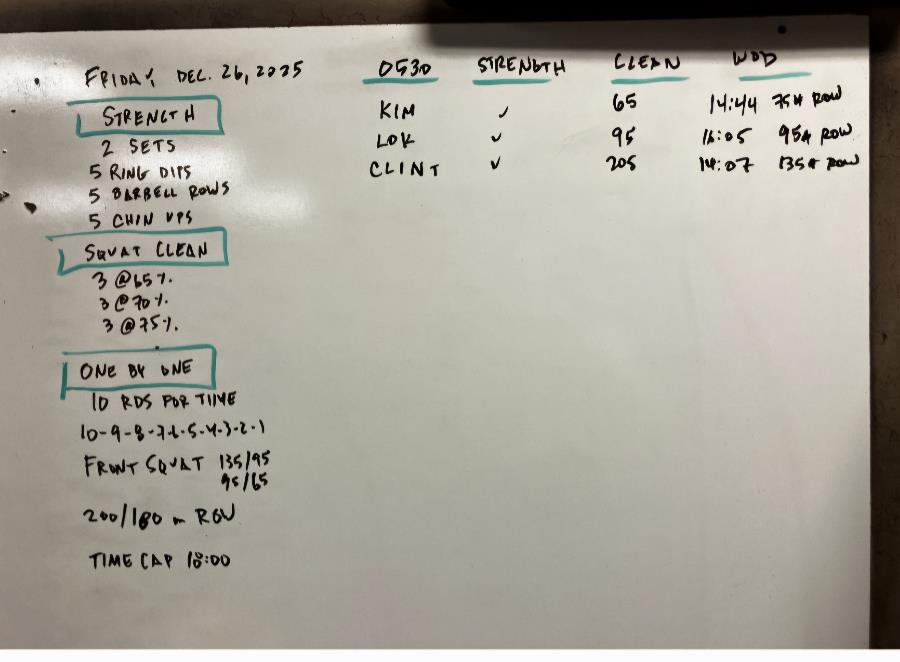 FRIDAY, DEC. 26, 2025
STRENGTH
2 SETS
5 RING DIPS
5 BARBELL ROWS
5 CHIN UPS
SQUAT CLEAN
3 @65%.
3 @70%.
3 @75%.
ONE BY ONE
10 RDS FOR TIME
10-9-8-7-6-5-4-3-2-1
FRONT SQUAT 135/95
95/65
200/180 m ROW
TIME CAP 18:00
0530 STRENGTH CLEAN WOD
KIM ✓ 65 14:44 75# ROW
LOK ✓ 95 16:05 95# ROW
CLINT ✓ 205 14:07 135# ROW